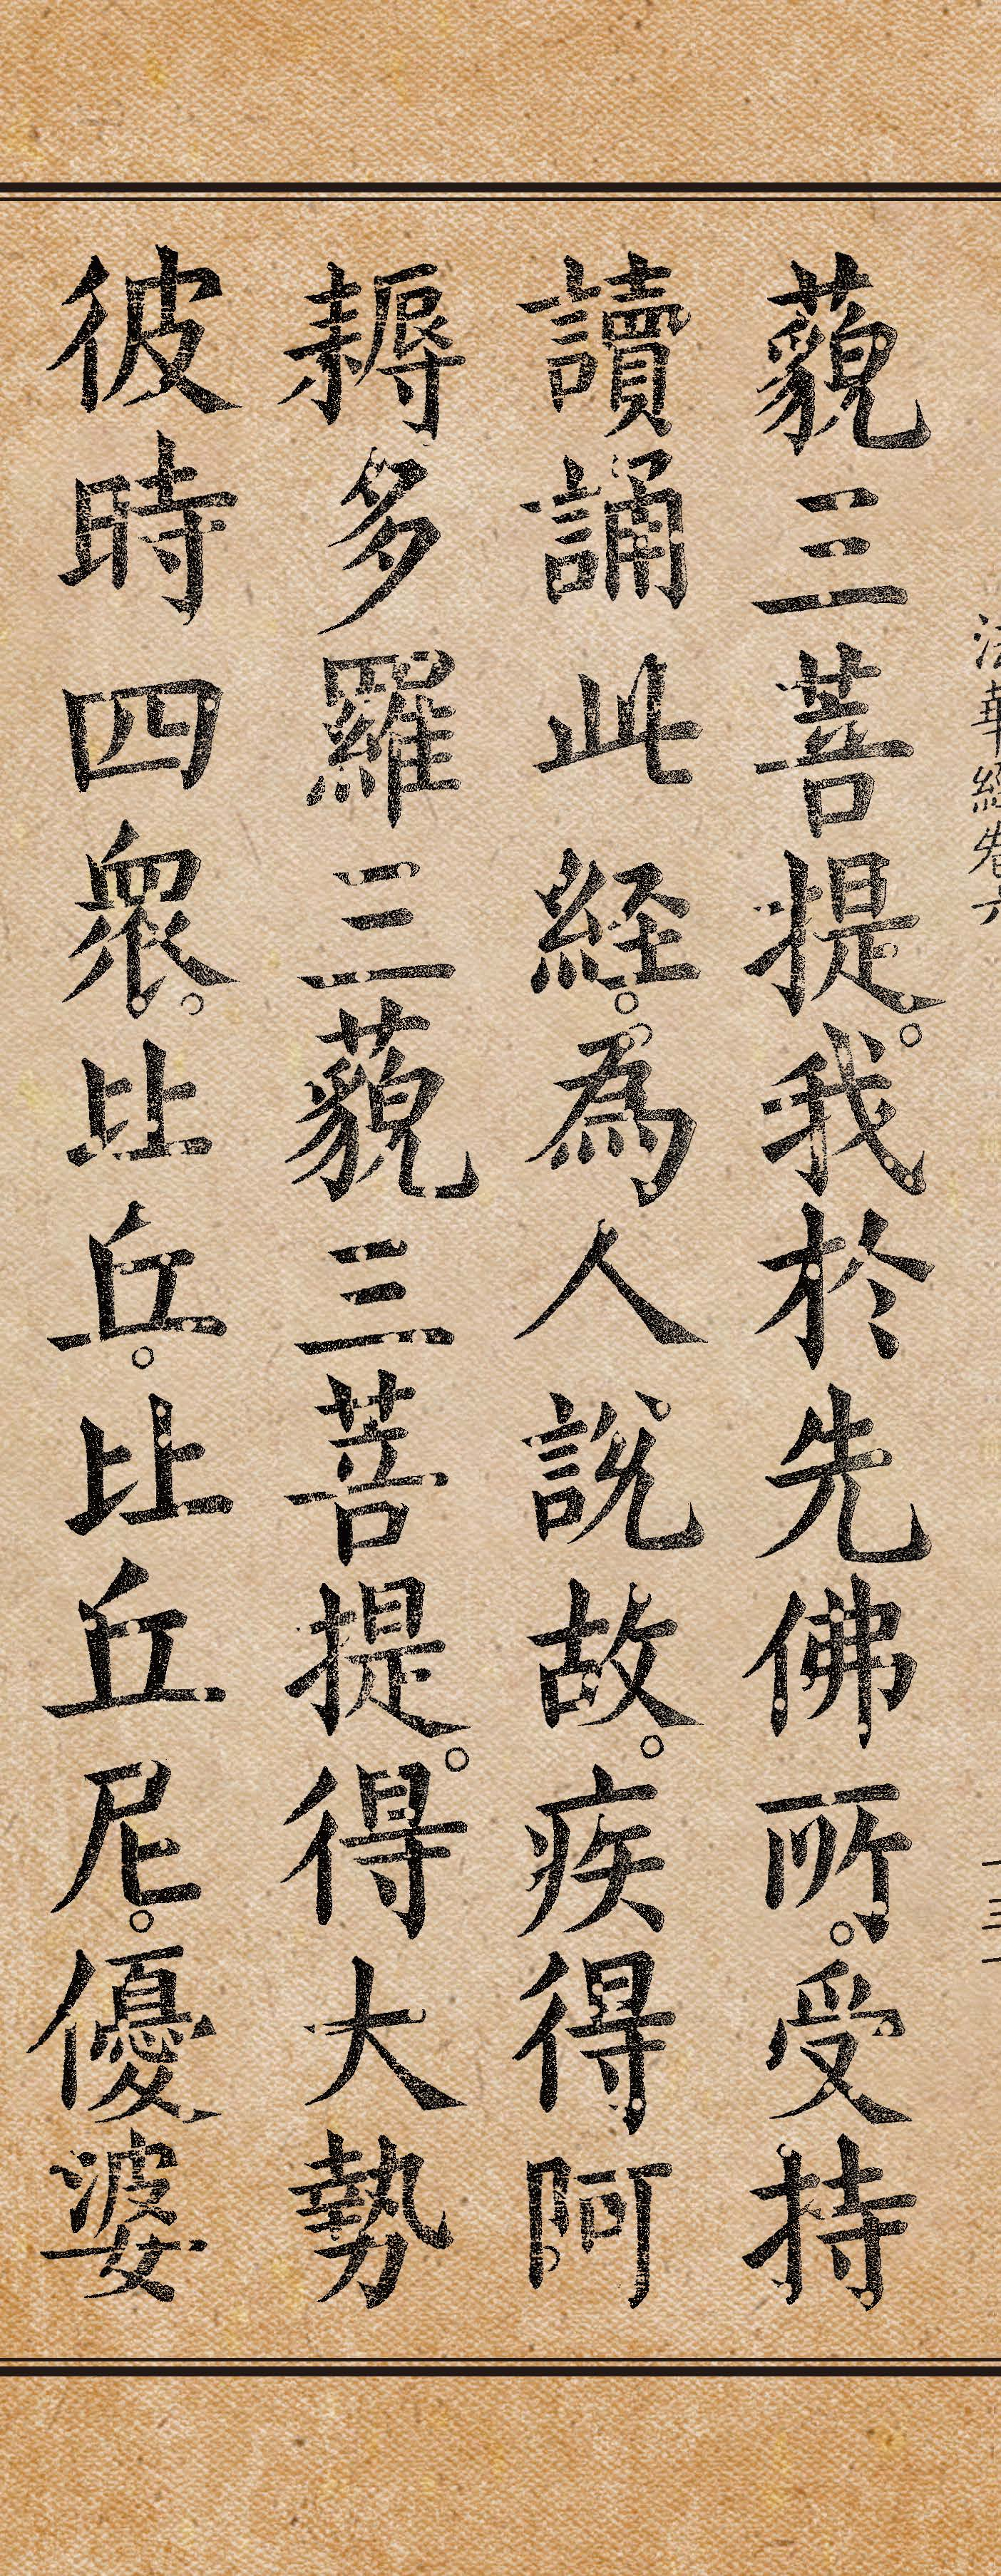 法華經卷六
藐三菩提。我於先佛所。受持
讀誦此経。為人說故。疾得阿
耨多羅三藐三菩提。得大勢
彼時四眾。比丘。比丘尼。優婆